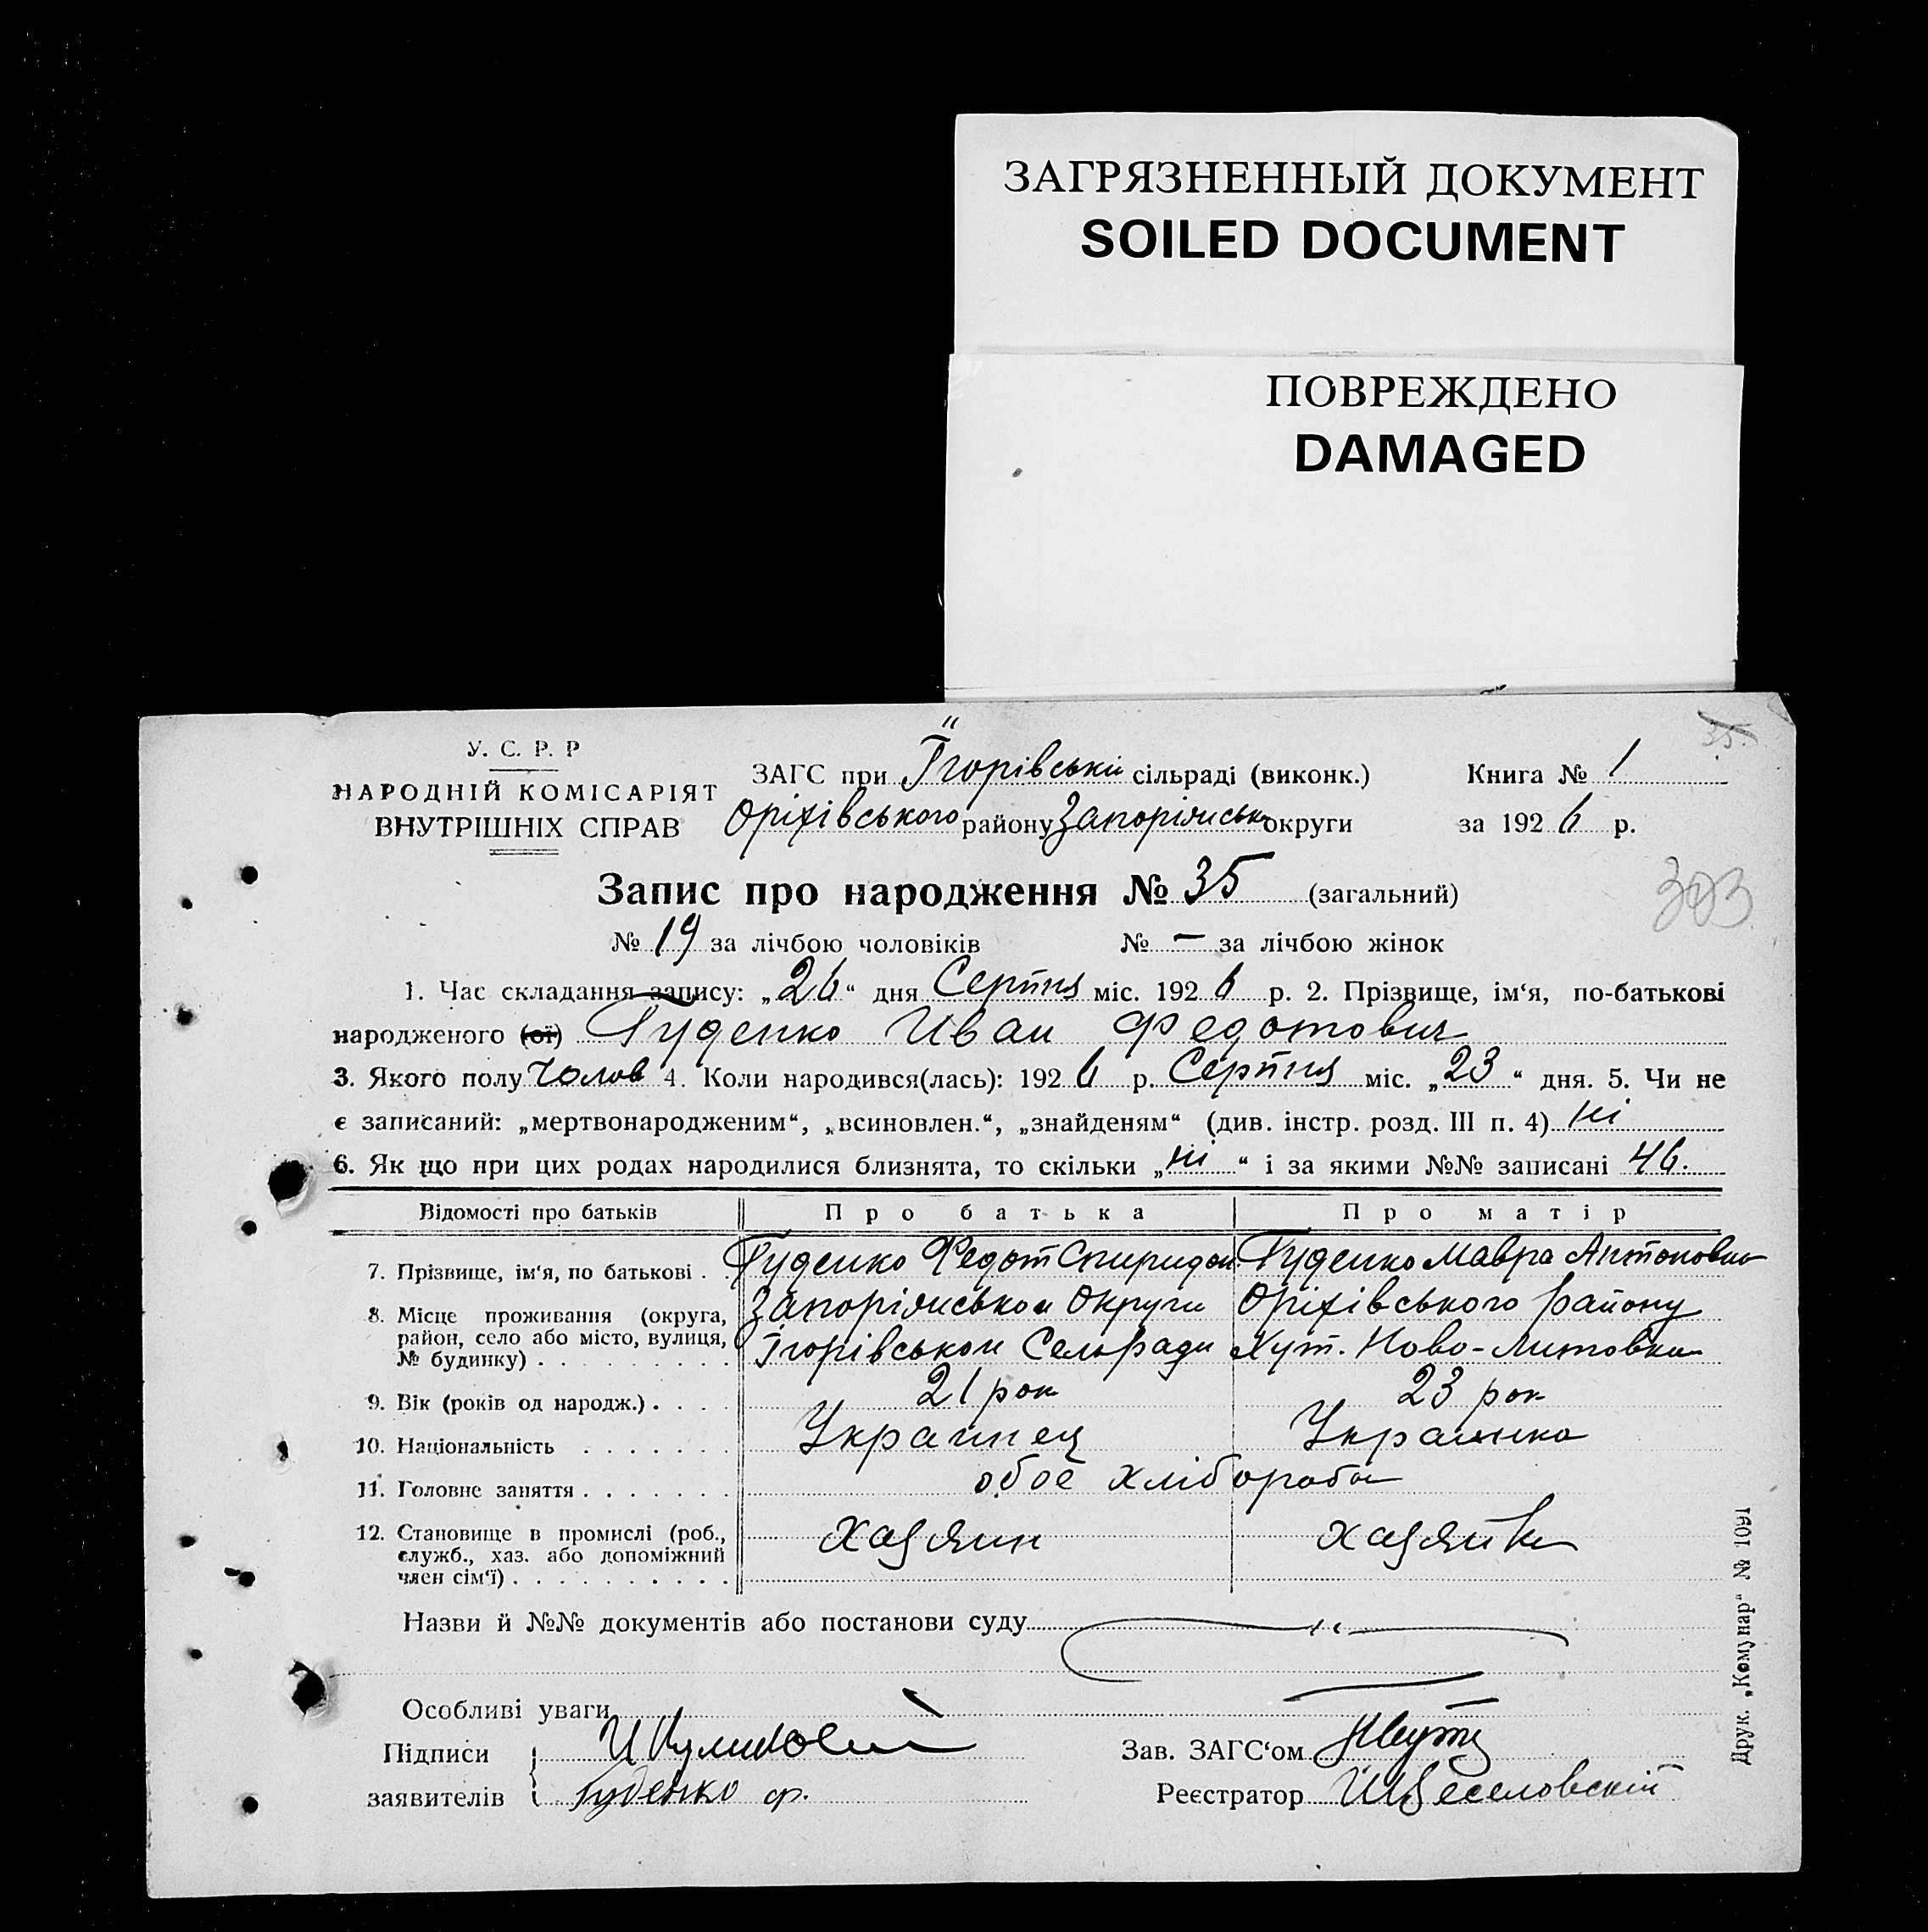 ЗАГРЯЗНЕННЫЙ ДОКУМЕНТ
SOILED DOCUMENT
ПОВРЕЖДЕНО
DAMAGED
35.
У. С. Р. Р
НАРОДНІЙ КОМІСАРІЯТ
ВНУТРІШНІХ СПРАВ
ЗАГС при Їгорівські сільраді (виконк.)
Оріхівського району Запоріжськ округи
Книга № 1
за 1926 р.
Запис про народження № 35 (загальний)
303
№ 19 за лічбою чоловіків № — за лічбою жінок
1. Час складання запису: „26“ дня Серпня міс. 1926 р. 2. Прізвище, ім‘я, по-батькові
народженого (ої) Гуденко Иван Федотович
3. Якого полу Чолов 4. Коли народився(лась): 1926 р. Серпня міс. „23“ дня. 5. Чи не
є записаний: „мертвонародженим“, „всиновлен.“, „знайденям“ (див. інстр. розд. III п. 4) ні
6. Як що при цих родах народилися близнята, то скільки „ні“ і за якими №№ записані 46.
Відомості про батьків Про батька Про матір
7. Прізвище, ім‘я, по батькові . . Гуденко Федот Спиридон. Гуденко Мавра Антоновна
8. Місце проживання (округа, Запоріжськои Округи Оріхівського району
район, село або місто, вулиця,
№ будинку) . . . . . . . . . Їгорівськои Сельради Хут. Ново-Литовка
9. Вік (років од народж.) . . . . 21 рок 23 рок
10. Національність . . . . . . . Украинец Украинка
11. Головне заняття . . . . . . . обоє хлібороба
12. Становище в промислі (роб., Хазяин хазяйка
служб., хаз. або допоміжний
член сім‘ї) . . . . . . . . . .
Назви й №№ документів або постанови суду
Особливі уваги
Підписи
заявителів Гуденко ф.
Зав. ЗАГС‘ом
Реєстратор Веселовскій
Друк. „Комунар“ № 1091